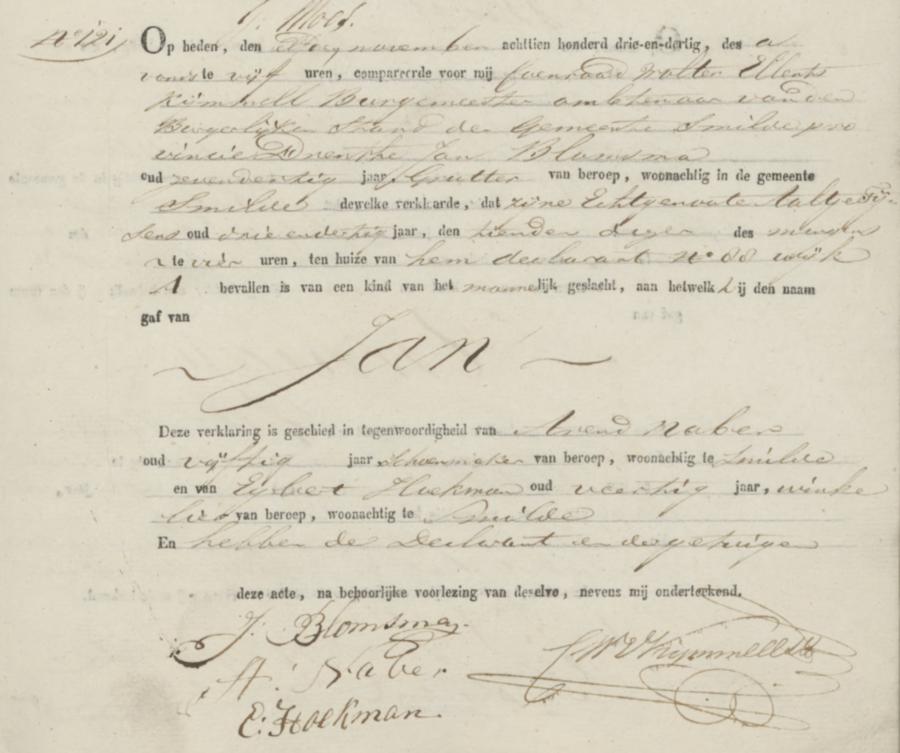 No 121
Op heden, den november achttien honderd drie-en-dertig, des a
vonds te vijf uren, compareerde voor mij Coenraad Wolter Ellents
Kümmell Burgemeester ambtenaar van den
Burgerlijken Stand der Gemeente Smilde pro
vincie Drenthe Jan Blomsma
oud zevendertig jaar, Grutter van beroep, woonachtig in de gemeente
Smilde dewelke verklaarde, dat zijne Echtgenoote Aaltje Tij-
sens oud drie endertig jaar, den tienden dezer des morgens
te vier uren, ten huize van hem declarant No 88 wijk
A bevallen is van een kind van het mannelijk geslacht, aan hetwelk zij den naam
gaf van
Jan
Deze verklaring is geschied in tegenwoordigheid van Arend Naber
oud vijftig jaar Schoenmaker van beroep, woonachtig te Smilde
en van Egbert Hoekman oud veertig jaar, winke
lier van beroep, woonachtig te Smilde
En hebben de Declarant en de getuigen
deze acte, na behoorlijke voorlezing van deselve, nevens mij onderteekend.
J. Blomsma.
CWEKymmell
A. Naber
E. Hoekman.